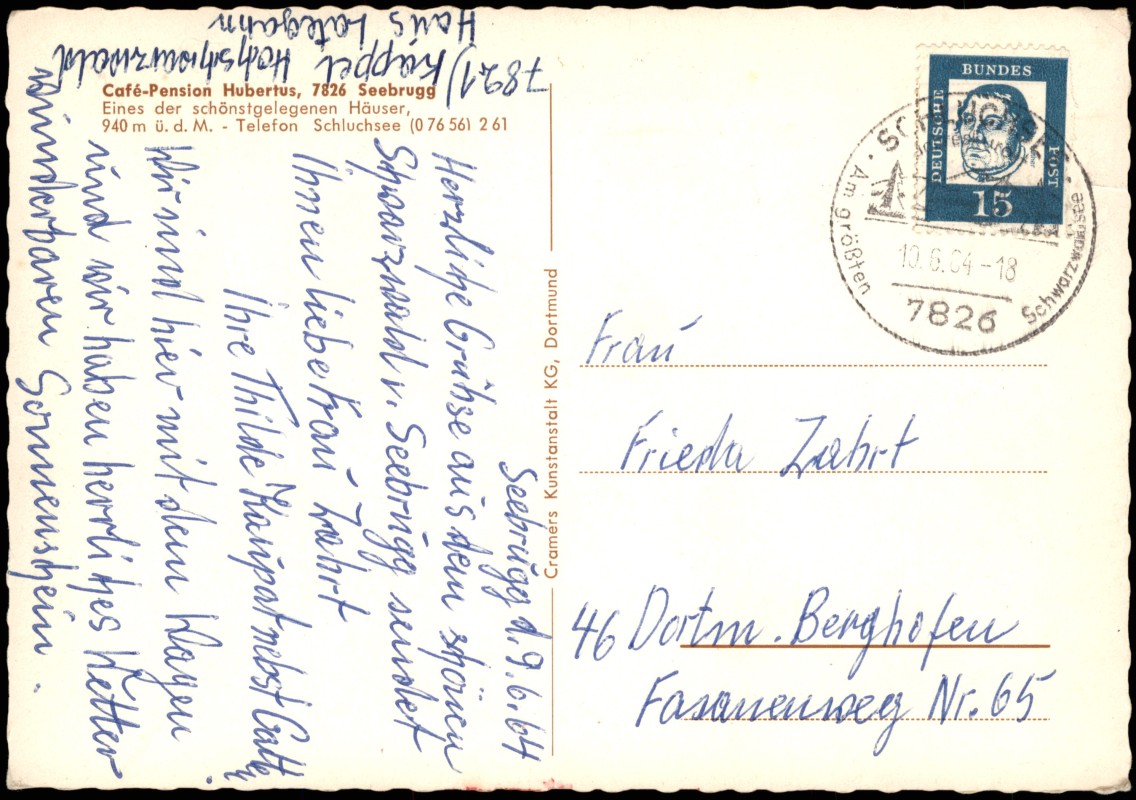 7821) Kappel Hochschwarzwald
Haus Lategahn
Café-Pension Hubertus, 7826 Seebrugg
Eines der schönstgelegenen Häuser,
940 m ü. d. M. - Telefon Schluchsee (0 76 56) 2 61
Seebrugg d. 9.6.64
Herzliche Grühse aus dem schönen
Schwarzwald v. Seebrugg sendet
Ihnen liebe Frau Zahrt
Ihre Thilde Kaupat nebst Gatte
Wir sind hier mit dem Wagen
und wir haben herrliches Wetter
wunderbaren Sonnenschein.
Cramers Kunstanstalt KG, Dortmund
DEUTSCHE
BUNDES
POST
15
SCHLUCHSEE
Am größten
Schwarzwaldsee
10.6.64-18
7826
Frau
Frieda Zahrt
46 Dortm. Berghofen
Fasanenweg Nr. 65